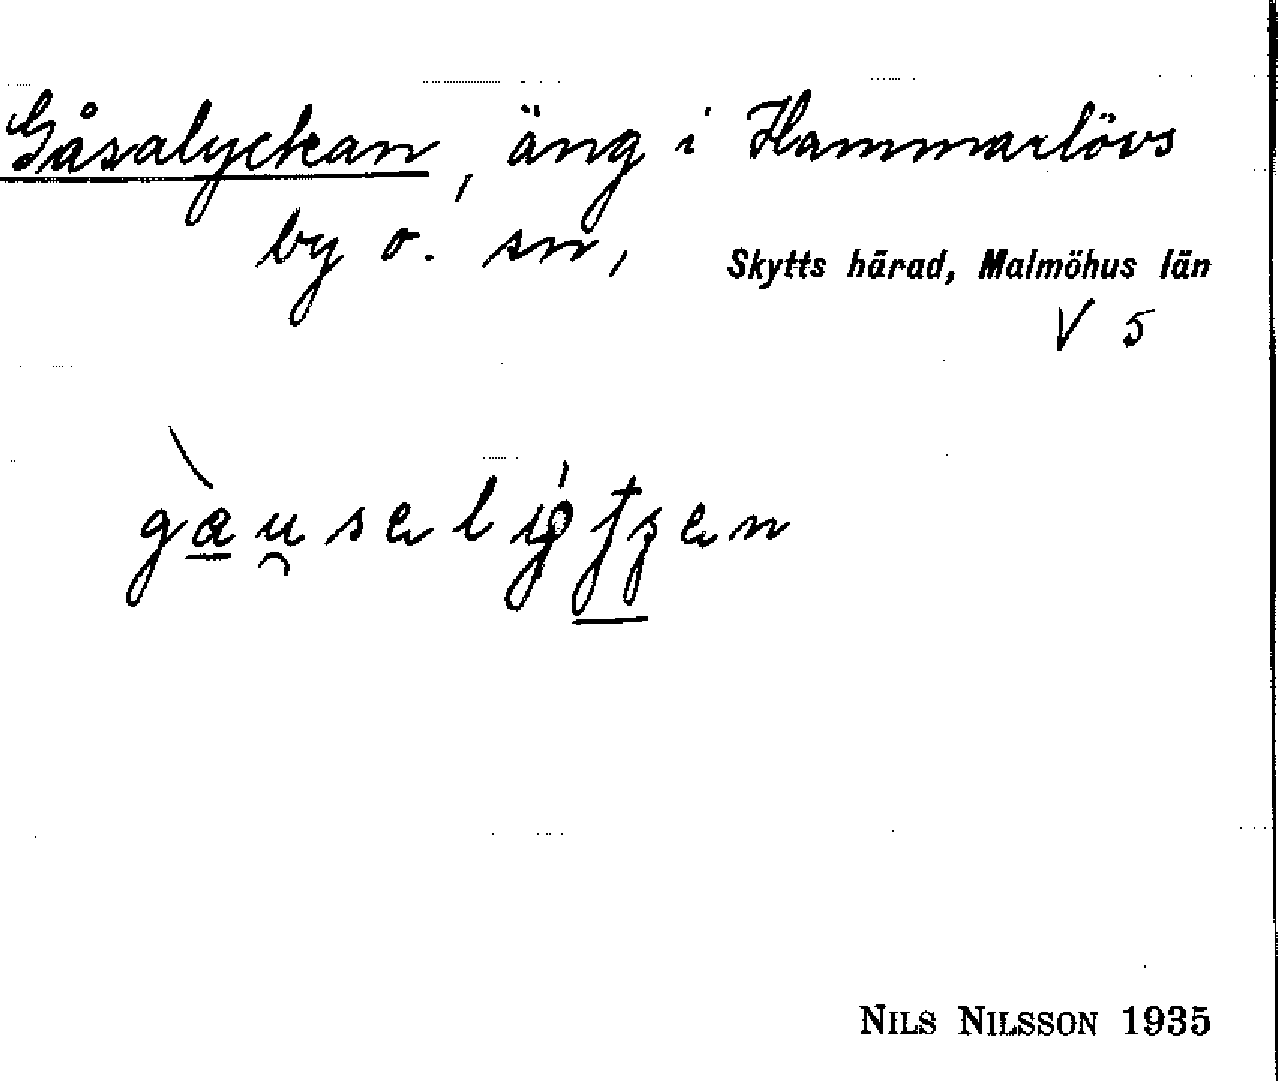 Gåsalyckan, äng i Hammarlövs
by o. sn, Skytts härad, Malmöhus län
V 5
NILS NILSSON 1935